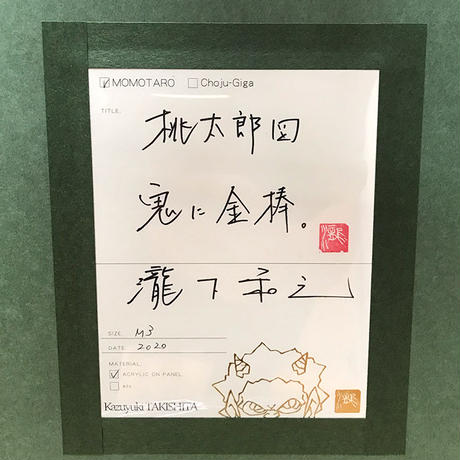 MOMOTARO Choju-Giga
TITLE.
桃太郎図
鬼に金棒。
瀧下和之
SIZE. M3
DATE. 2020
MATERIAL.
ACRYLIC ON PANEL.
etc
Kazuyuki TAKISHITA